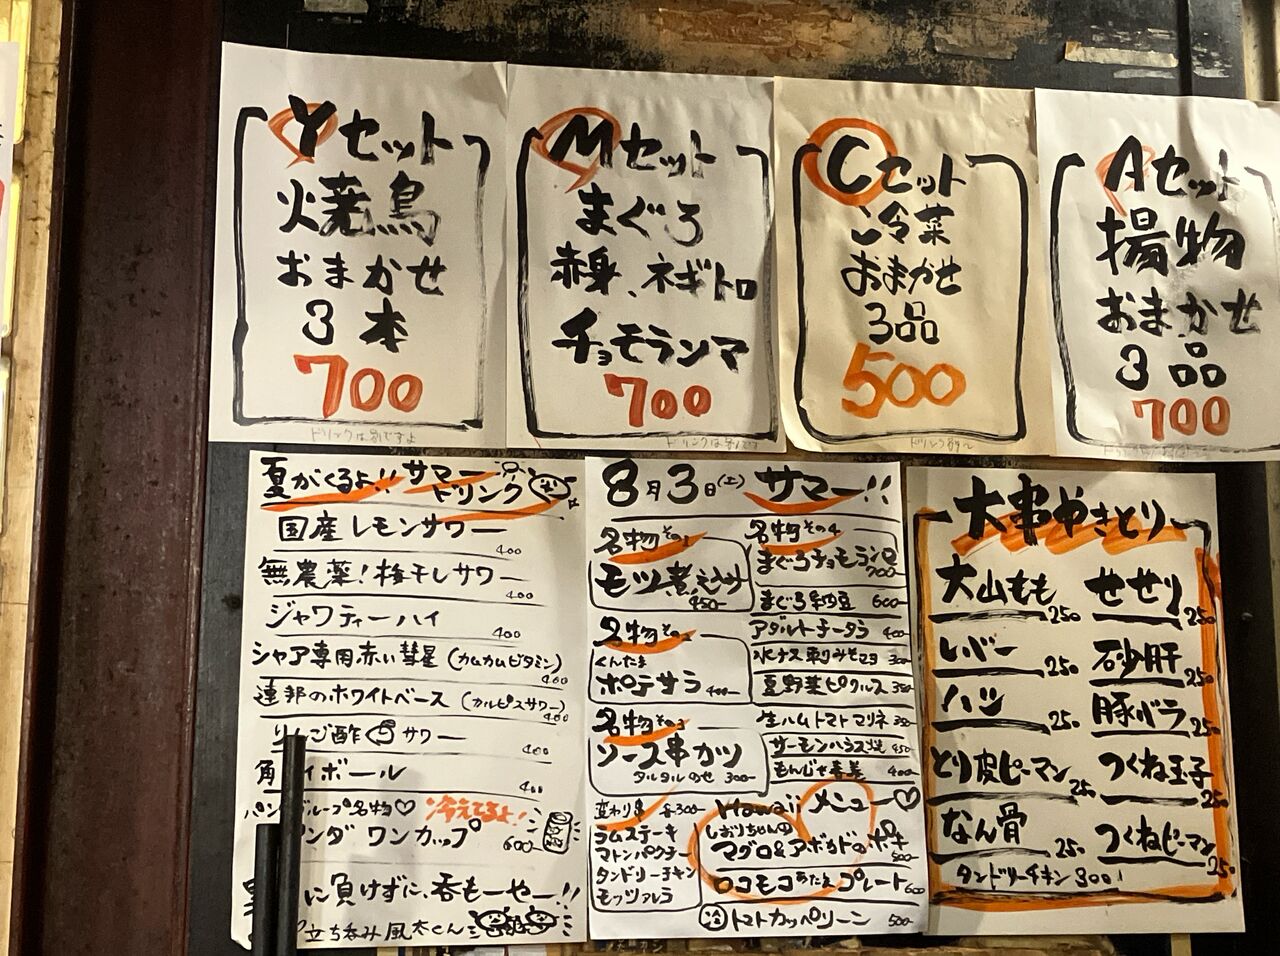 Yセット
焼鳥
おまかせ
3本
700
ドリンクは別ですよ
Mセット
まぐろ
赤身、ネギトロ
チョモランマ
700
ドリンクは別です
Cセット
冷菜
おまかせ
3品
500
Aセット
揚物
おまかせ
3品
700
夏がくるよ!! サマー
ドリンク
国産レモンサワー 400
無農薬!梅干しサワー 400
ジャワティーハイ 400
シャア専用赤い彗星(カムカムビタミン) 400
連邦のホワイトベース(カルピスサワー) 400
りんご酢サワー 400
角 イボール 400
冷えてるよ!
ワンカップ 600
に負けずに、呑もーやー!!
立ち呑み 風太くん
8月3日(土) サマー!!
名物その1
モツ煮込み 450
名物その2
くんたま
ポテサラ 400
名物その3
ソース串カツ
タルタルのせ 300
変わり串 各300
ラムステーキ
マトンパクチー
タンドリーチキン
モッツァレラ
名物その4
まぐろチョモランマ 700
まぐろ納豆 600
アダルトチータラ 400
水ナス刺みそマヨ 300
夏野菜ピクルス 350
生ハムトマトマリネ 350
サーモンハラス焼 450
もんじゃ春巻 400
Hawaii メニュー♡
しおりちゃんの
マグロ&アボカドのポキ 500
ロコモコあたまプレート 600
冷 トマトカッペリーン 500
大串やきとり
大山もも 250
せせり 250
レバー 250
砂肝 250
ハツ 250
豚バラ 250
とり皮ピーマン 250
つくね玉子 250
なん骨 250
つくねピーマン 250
タンドリーチキン 300